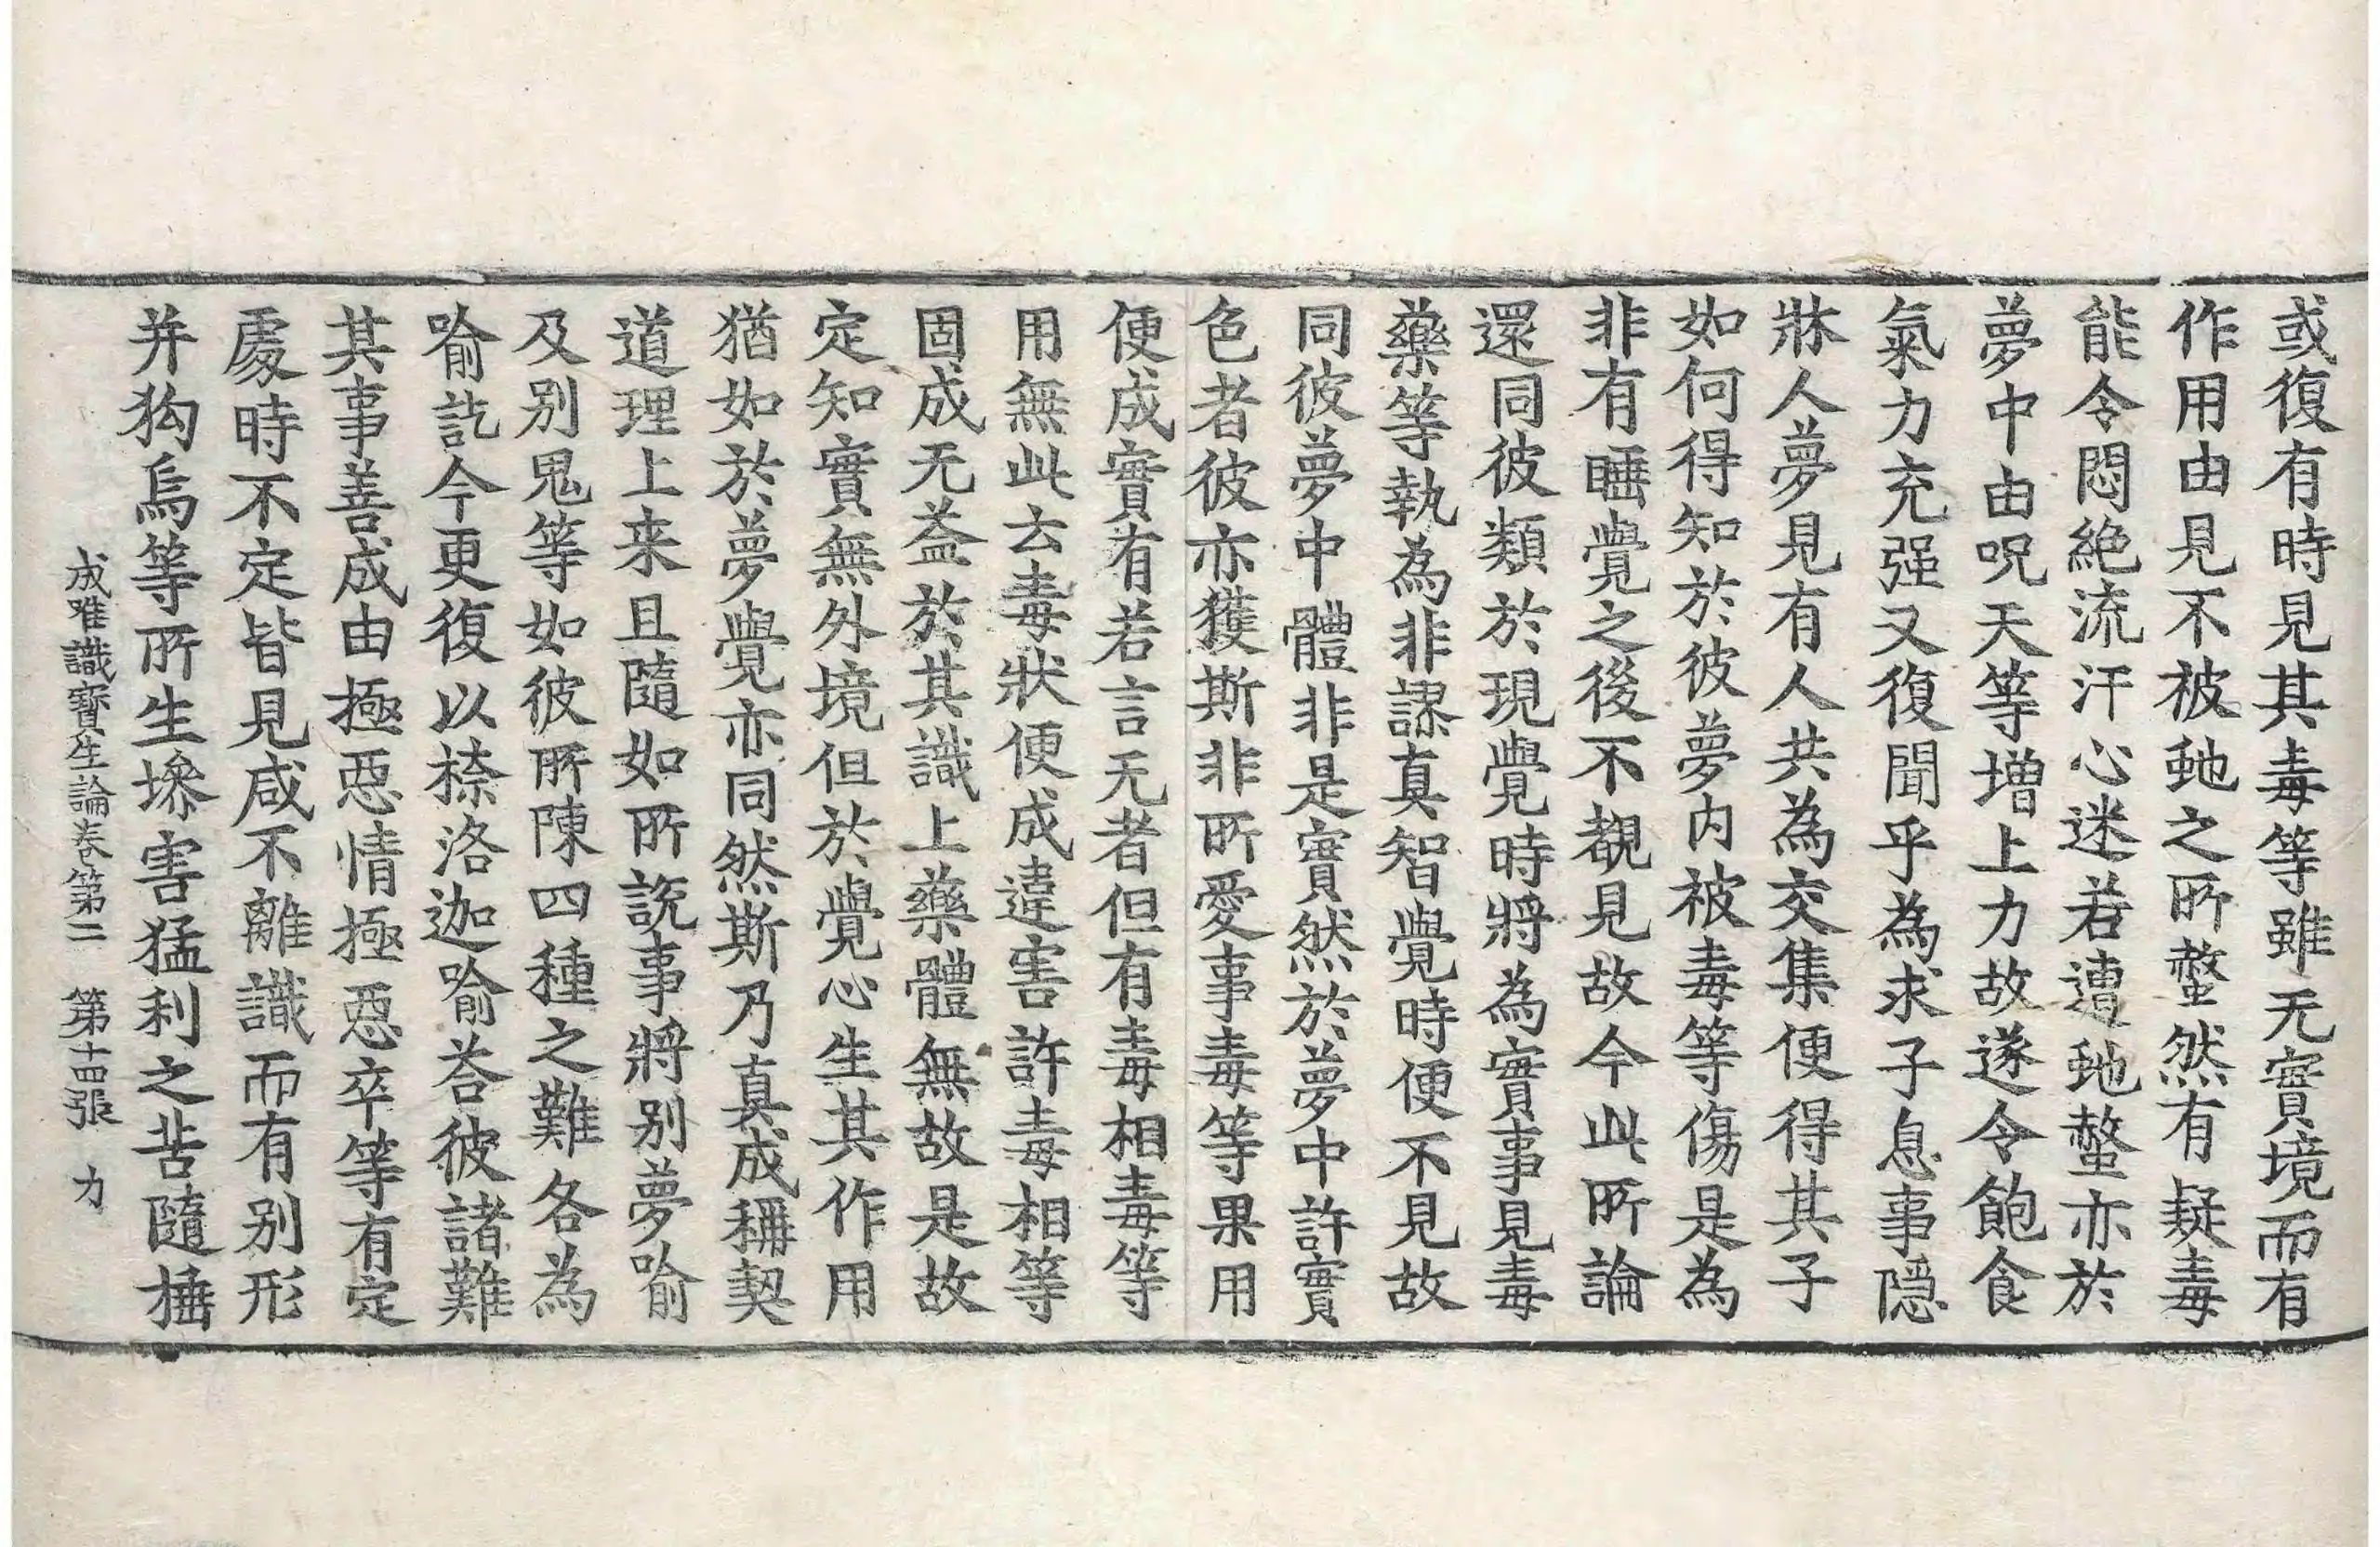 或復有時見其毒等雖无實境而有
作用由見不被虵之所螫然有疑毒
能令悶絕流汗心迷若遭虵螫亦於
夢中由呪天等增上力故遂令飽食
氣力充强又復聞乎為求子息事隱
牀人夢見有人共為交集便得其子
如何得知於彼夢內被毒等傷是為
非有睡覺之後不覩見故今此所論
還同彼類於現覺時將為實事見毒
藥等執為非謬真智覺時便不見故
同彼夢中體非是實然於夢中許實
色者彼亦獲斯非所愛事毒等果用
便成實有若言无者但有毒相毒等
用無此去毒狀便成違害許毒相等
固成无益於其識上藥體無故是故
定知實無外境但於覺心生其作用
猶如於夢覺亦同然斯乃真成稱契
道理上来且隨如所說事將別夢喻
及別鬼等如彼所陳四種之難各為
喻訖今更復以捺洛迦喻荅彼諸難
其事善成由極惡情極惡卒等有定
處時不定皆見咸不離識而有別形
并狗烏等所生墋害猛利之苦隨捶
成唯識寶生論卷第二 第十四張 力